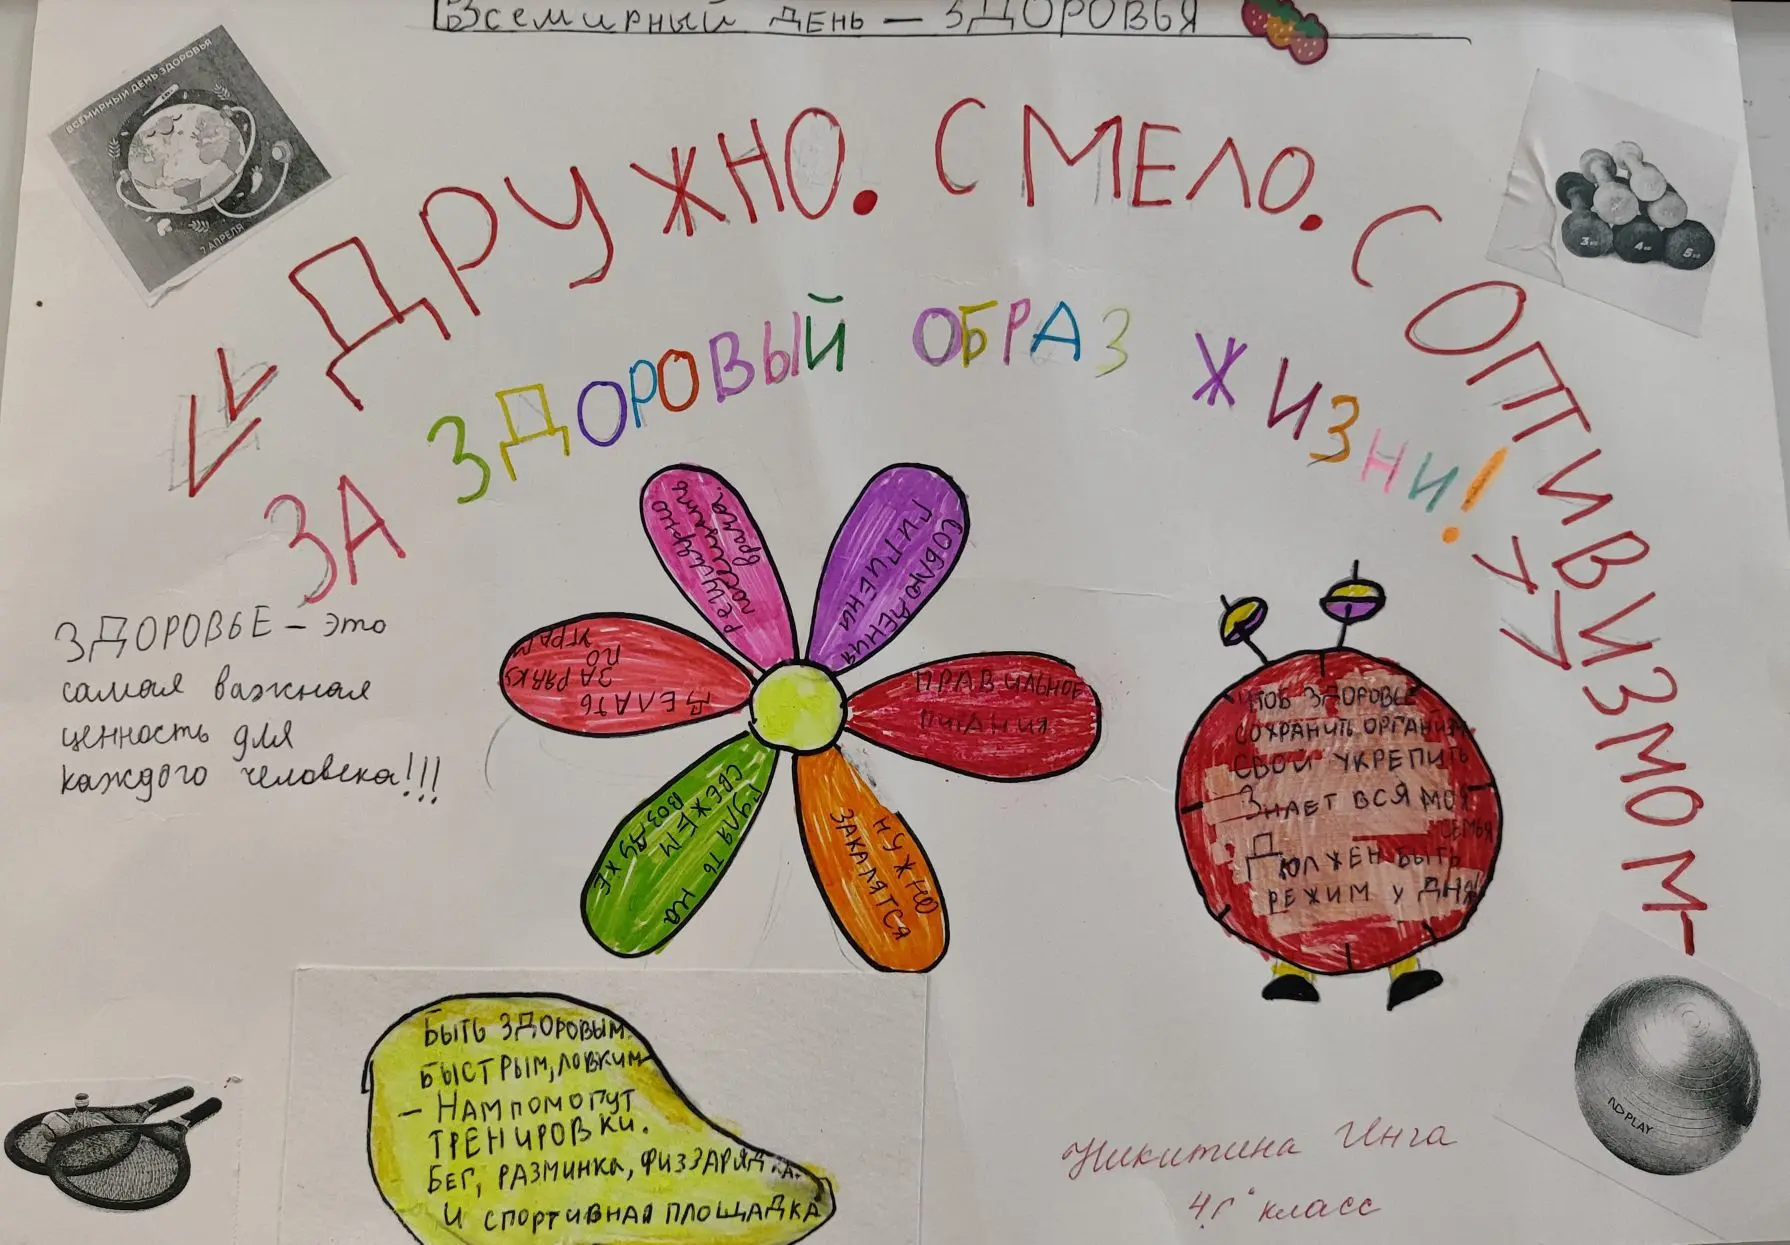 Всемирный день – ЗДОРОВЬЯ
ВСЕМИРНЫЙ ДЕНЬ ЗДОРОВЬЯ
7 АПРЕЛЯ
<< ДРУЖНО. СМЕЛО. С ОПТИВИЗМОМ-
ЗА ЗДОРОВЫЙ ОБРАЗ ЖИЗНИ! >>
3кг 4кг 5кг
ЗДОРОВЬЕ – это
самая важная
ценность для
каждого человека!!!
регулярно
посещать
врача.
СОБЛЮДЕНИЯ
ГИГИЕНИ
ПРАВИЛЬНОЕ
ПИТАНИЯ
НУЖНО
ЗАКАЛЯТСЯ
ГУЛЯТЬ НА
СВЕЖЕМ
ВОЗДУХЕ
ДЕЛАТЬ
ЗАРЯДКУ
ПО
УТРАМ
ЧТОБ ЗДОРОВЬЕ
СОХРАНИТЬ ОРГАНИЗМ
СВОЙ УКРЕПИТЬ
ЗНАЕТ ВСЯ МОЯ
СЕМЬЯ
ДОЛЖЕН БЫТЬ
РЕЖИМ У ДНЯ!
БЫТЬ ЗДОРОВЫМ
БЫСТРЫМ, ЛОВКИМ
– НАМ ПОМОГУТ
ТРЕНИРОВКИ.
БЕГ, РАЗМИНКА, ФИЗЗАРЯДКА.
И СПОРТИВНАЯ ПЛОЩАДКА
NDPLAY
Никитина Инга
4"Г" класс